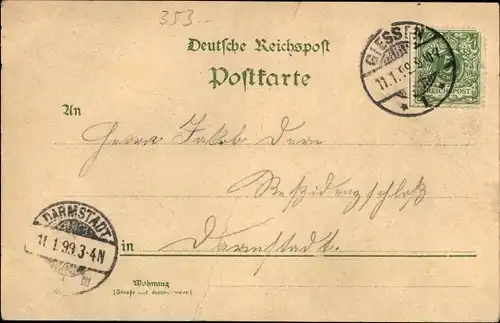 353.
Deutsche Reichspost
Postkarte
GIESSEN
11.1.99.9-10.V.
* 1.
REICHSPOST
An
Herrn Jakob Dern
Residenzschloß
DARMSTADT
11.1.99.3-4N
in Darmstadt.
Wohnung
(Straße und Hausnummer)